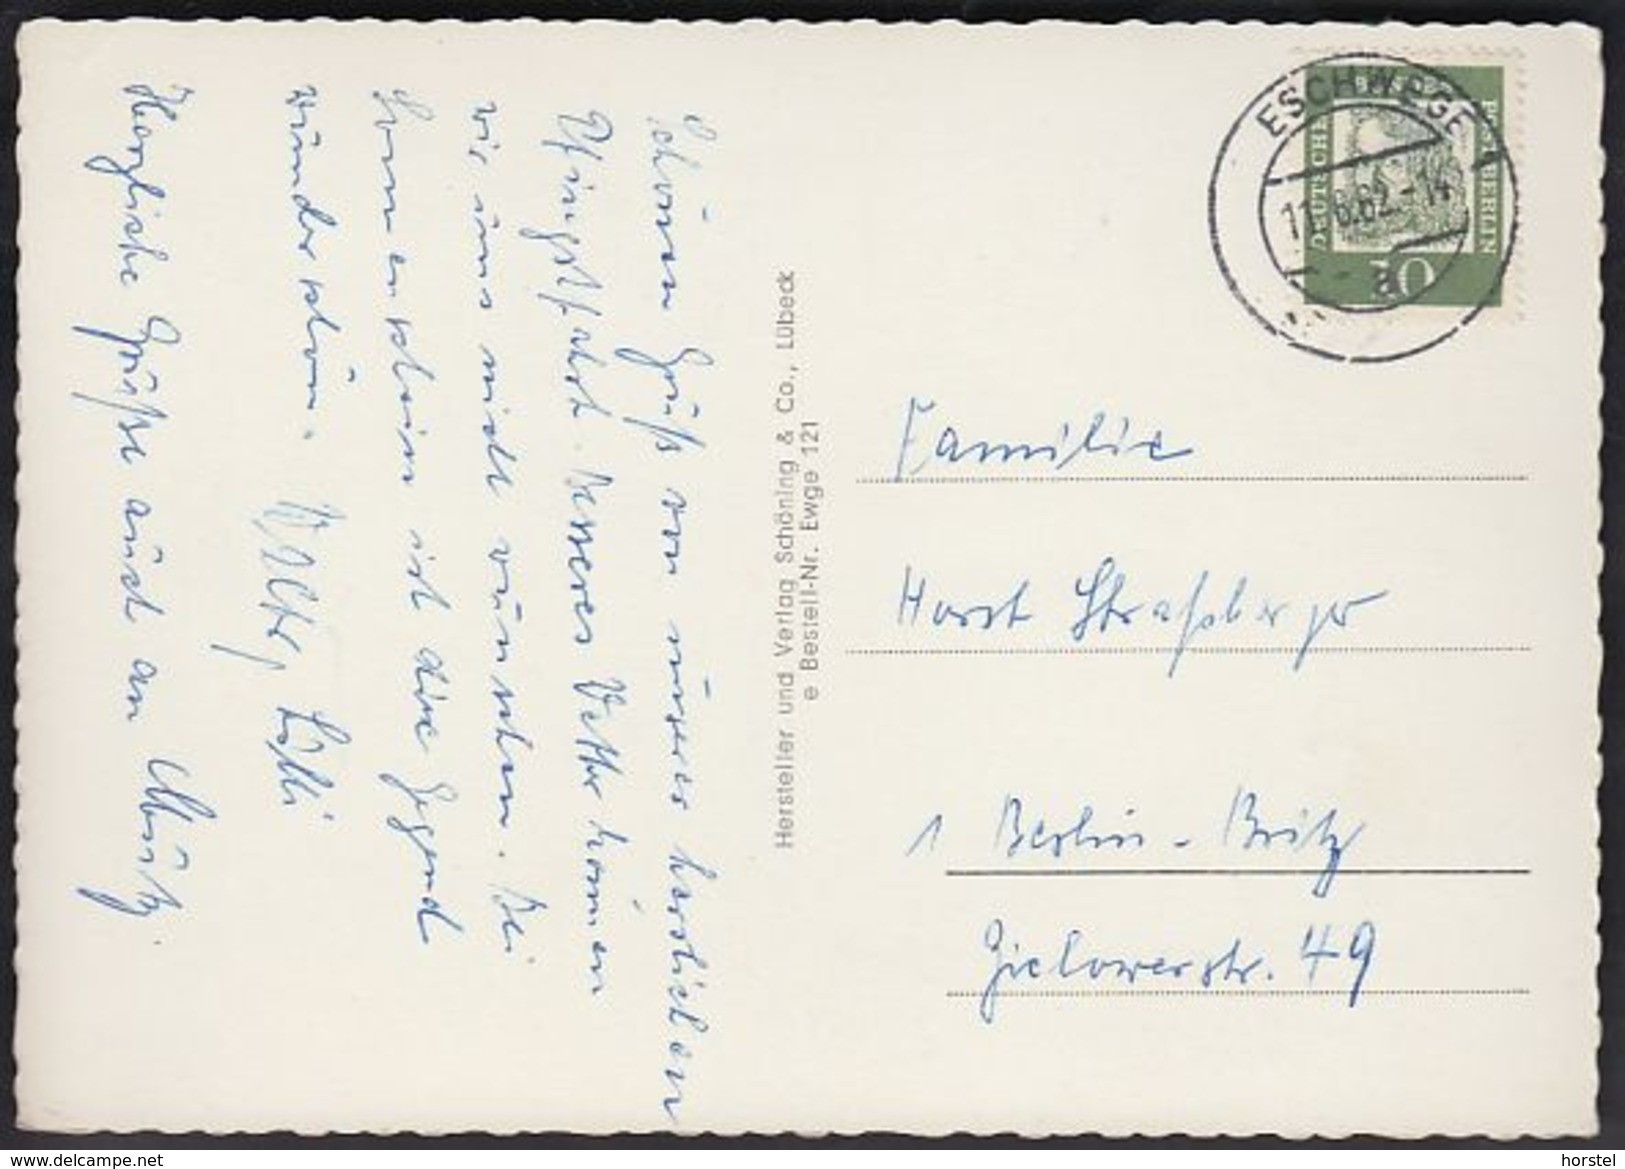 Schönen Gruß von unserer herrlichen
Pfingstfahrt. Besseres Wetter können
wir uns nicht wünschen. Bei
Sonnenschein ist die Gegend
wunderschön.
Lolli
Herzliche Grüße auch an
Hersteller und Verlag Schöning & Co., Lübeck
e Bestell-Nr. Ewge 121
ESCHWEGE
11.6.62.-14
a
DEUTSCHE BUNDESPOST BERLIN
10
Familie
Horst Straßberger
1 Berlin-Britz
Zielowerstr. 49
delcampe.net
horstel